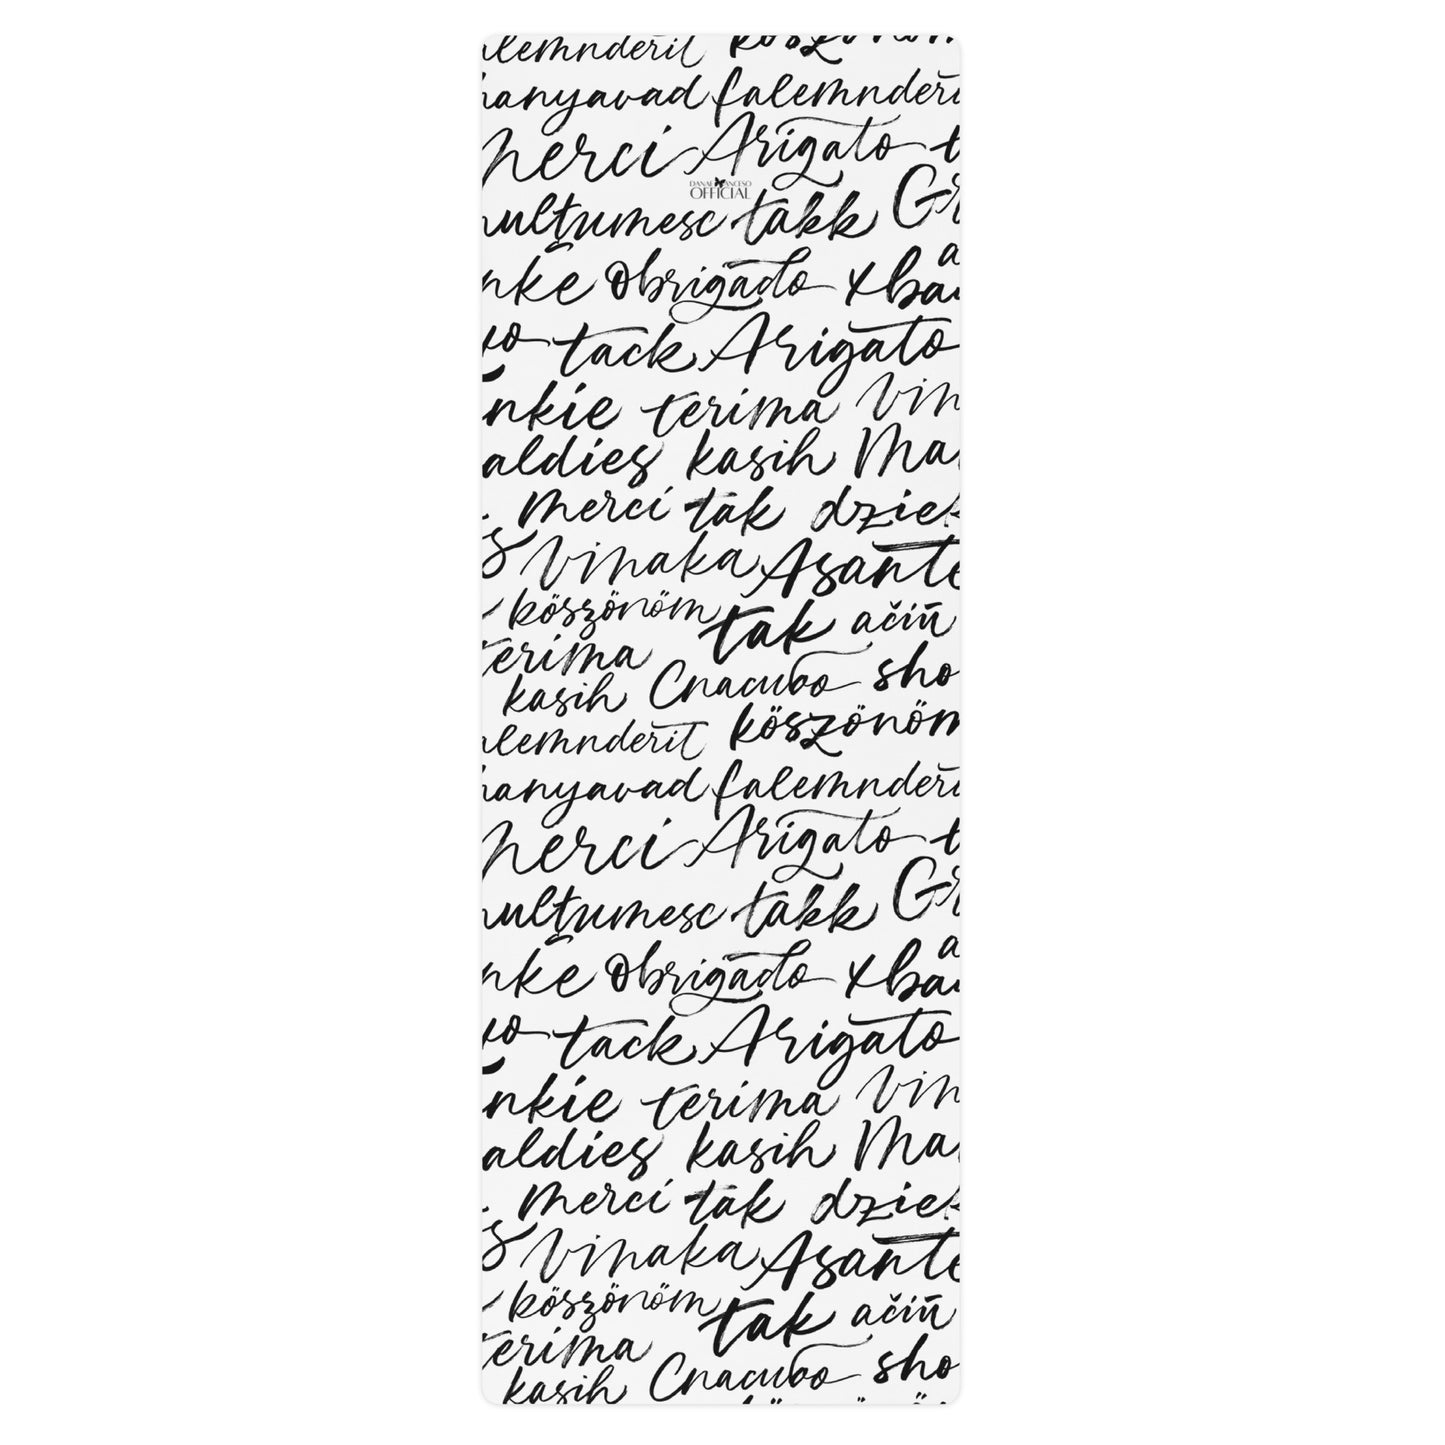 alemnderit köszönöm
hanyavad falemnderi
Merci Arigato t
DANAE ANCESO
OFFICIAL
multumesc takk Gr
a
nke Obrigado xba
vo tack Arigato
nkie terima vin
aldies kasih Ma
merci tak dziek
s vinaka Asante
köszönöm tak ačiū
terima
kasih Спасибо sho
alemnderit köszönöm
hanyavad falemnderi
Merci Arigato t
multumesc takk Gr
a
nke Obrigado xba
vo tack Arigato
nkie terima vin
aldies kasih Ma
merci tak dziek
s vinaka Asante
köszönöm tak ačiū
terima
kasih Спасибо sho